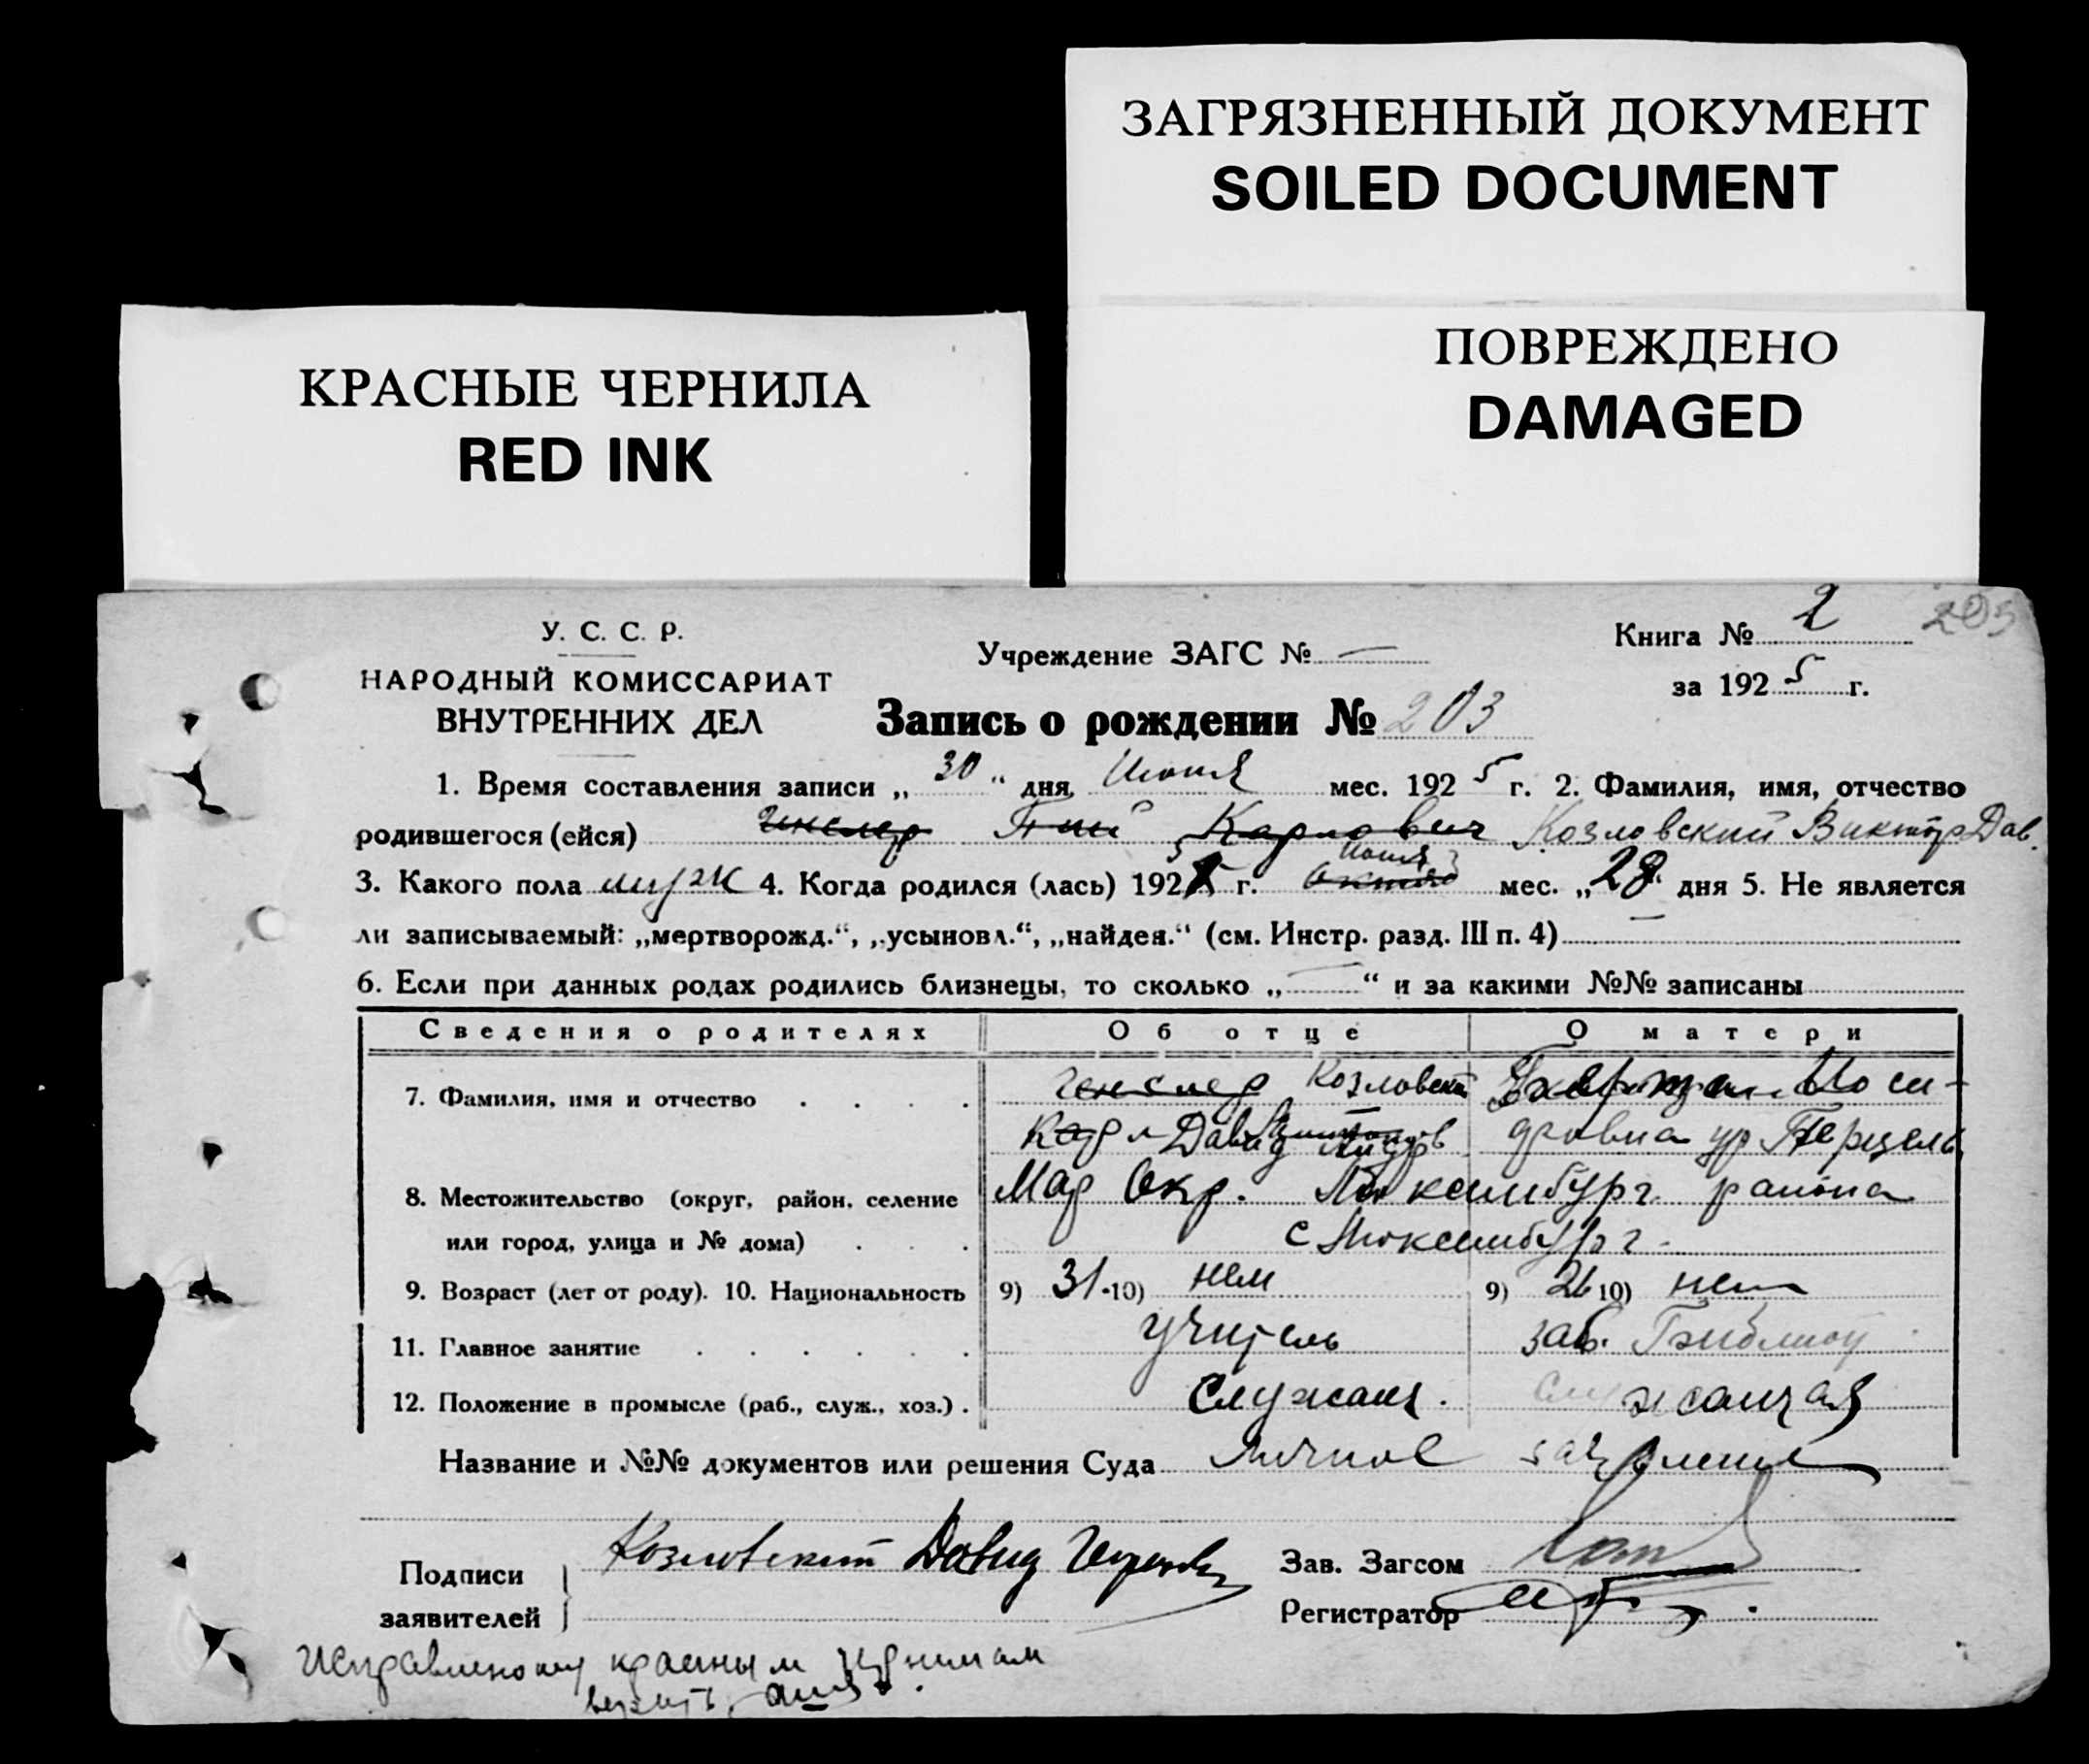 ЗАГРЯЗНЕННЫЙ ДОКУМЕНТ
SOILED DOCUMENT
ПОВРЕЖДЕНО
DAMAGED
КРАСНЫЕ ЧЕРНИЛА
RED INK
У. С. С. Р.
НАРОДНЫЙ КОМИССАРИАТ
ВНУТРЕННИХ ДЕЛ
Учреждение ЗАГС № —
Книга № 2 203
за 1925 г.
Запись о рождении № 203
1. Время составления записи „30“ дня Июня мес. 1925 г. 2. Фамилия, имя, отчество
родившегося (ейся) Карлович Козловский Виктор Дав.
3. Какого пола муж 4. Когда родился (лась) 1925 г. Июня мес. „28“ дня 5. Не является
ли записываемый: „мертворожд.“, „усыновл.“, „найден.“ (см. Инстр. разд. III п. 4) —
6. Если при данных родах родились близнецы, то сколько „—“ и за какими №№ записаны
Сведения о родителях Об отце О матери
7. Фамилия, имя и отчество Генслер Козловский
Карл Давид дровна ур
8. Местожительство (округ, район, селение Мар Окр. Люксембург района
или город, улица и № дома) с Люксембург
9. Возраст (лет от роду). 10. Национальность 9) 31 10) нем 9) 26 10) нем
11. Главное занятие учитель зав.
12. Положение в промысле (раб., служ., хоз.) Служащ. Служащая
Название и №№ документов или решения Суда Личное заявление
Подписи заявителей Козловский Давид
Зав. Загсом
Регистратор
Исправленому красным чернилам
верить